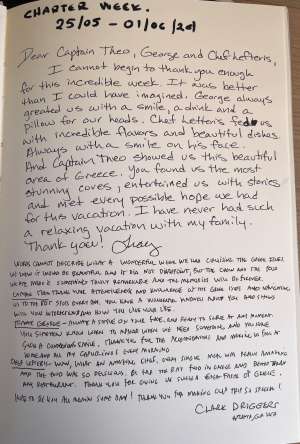 CHARTER WEEK.
25/05 - 01/06/24
Dear Captain Theo, George and Chef Lefteris,
I cannot begin to thank you enough
for this incredible week. It was better
than I could have imagined. George always
greated us with a smile, a drink and a
pillow for our heads. Chef Lefteris fed us
with incredible flavors and beautiful dishes.
Always with a smile on his face.
And Captain Theo showed us this beautiful
area of Greece. You found us the most
stunning coves, entertained us with stories
and met every possible hope we had
for this vacation. I have never had such
a relaxing vacation with my family.
Thank you!
WORDS CANNOT DESCRIBE WHAT A WONDERFUL WEEK WE HAD CRUISING THE GREEK ISLES.
WE KNEW IT WOULD BE BEAUTIFUL AND IT DID NOT DISAPPOINT, BUT THE CREW AND THE FOOD
WE ATE MADE IT SOMETHING TRULY REMARKABLE AND THE MEMORIES WILL BE FOREVER.
CAPTAIN THEO THANK YOUR ATTENTIVENESS AND KNOWLEDGE OF THE GREEK ISLES AND
US TO THE BEST STOPS EVERY DAY. YOU HAVE A WONDERFUL MANNER ABOUT YOU AND
WITH YOUR AND HOW YOU LIVE YOUR LIFE.
GEORGE - ALWAYS A SMILE ON YOUR FACE, AND READY TO SERVE AT ANY MOMENT.
YOU SOMEHOW ALWAYS KNEW TO APPEAR WHEN WE NEED SOMETHING, AND YOU HAVE
SUCH A COMFORTABLE SMILE. THANK YOU FOR THE AND MAKING US FEEL AT
HOME AND ALL MY CAPPUCINOS EVERY MORNING
CHEF LEFTERIS - WOW, WHAT AN AMAZING CHEF. EVERY SINGLE MEAL WAS REALLY AMAZING
AND THE FOOD WAS SO DELICIOUS. BY FAR THE BEST FOOD IN GREECE AND BETTER THAN
ANY RESTAURANT. THANK YOU FOR GIVING US SUCH A GREAT TASTE OF GREECE.
HOPE TO BE WITH ALL AGAIN SOME DAY! THANK YOU FOR MAKING OUR TRIP SO SPECIAL!
CLARK DRIGGERS
ATLANTA, GA USA